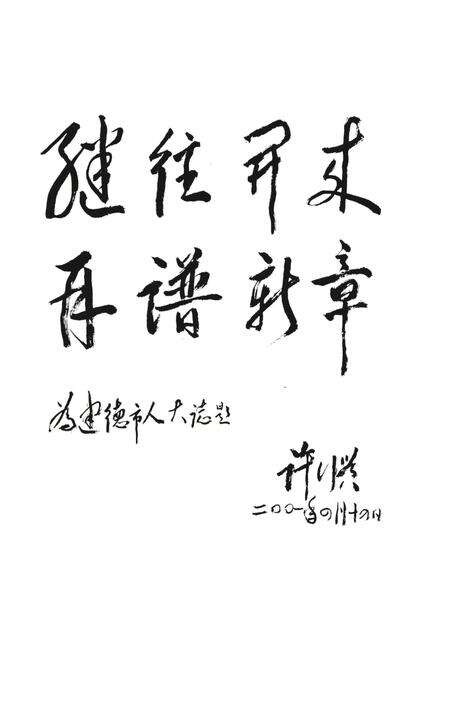 继往开来
再谱新章
为建德市人大志题
许行贯
二〇〇一年四月十四日